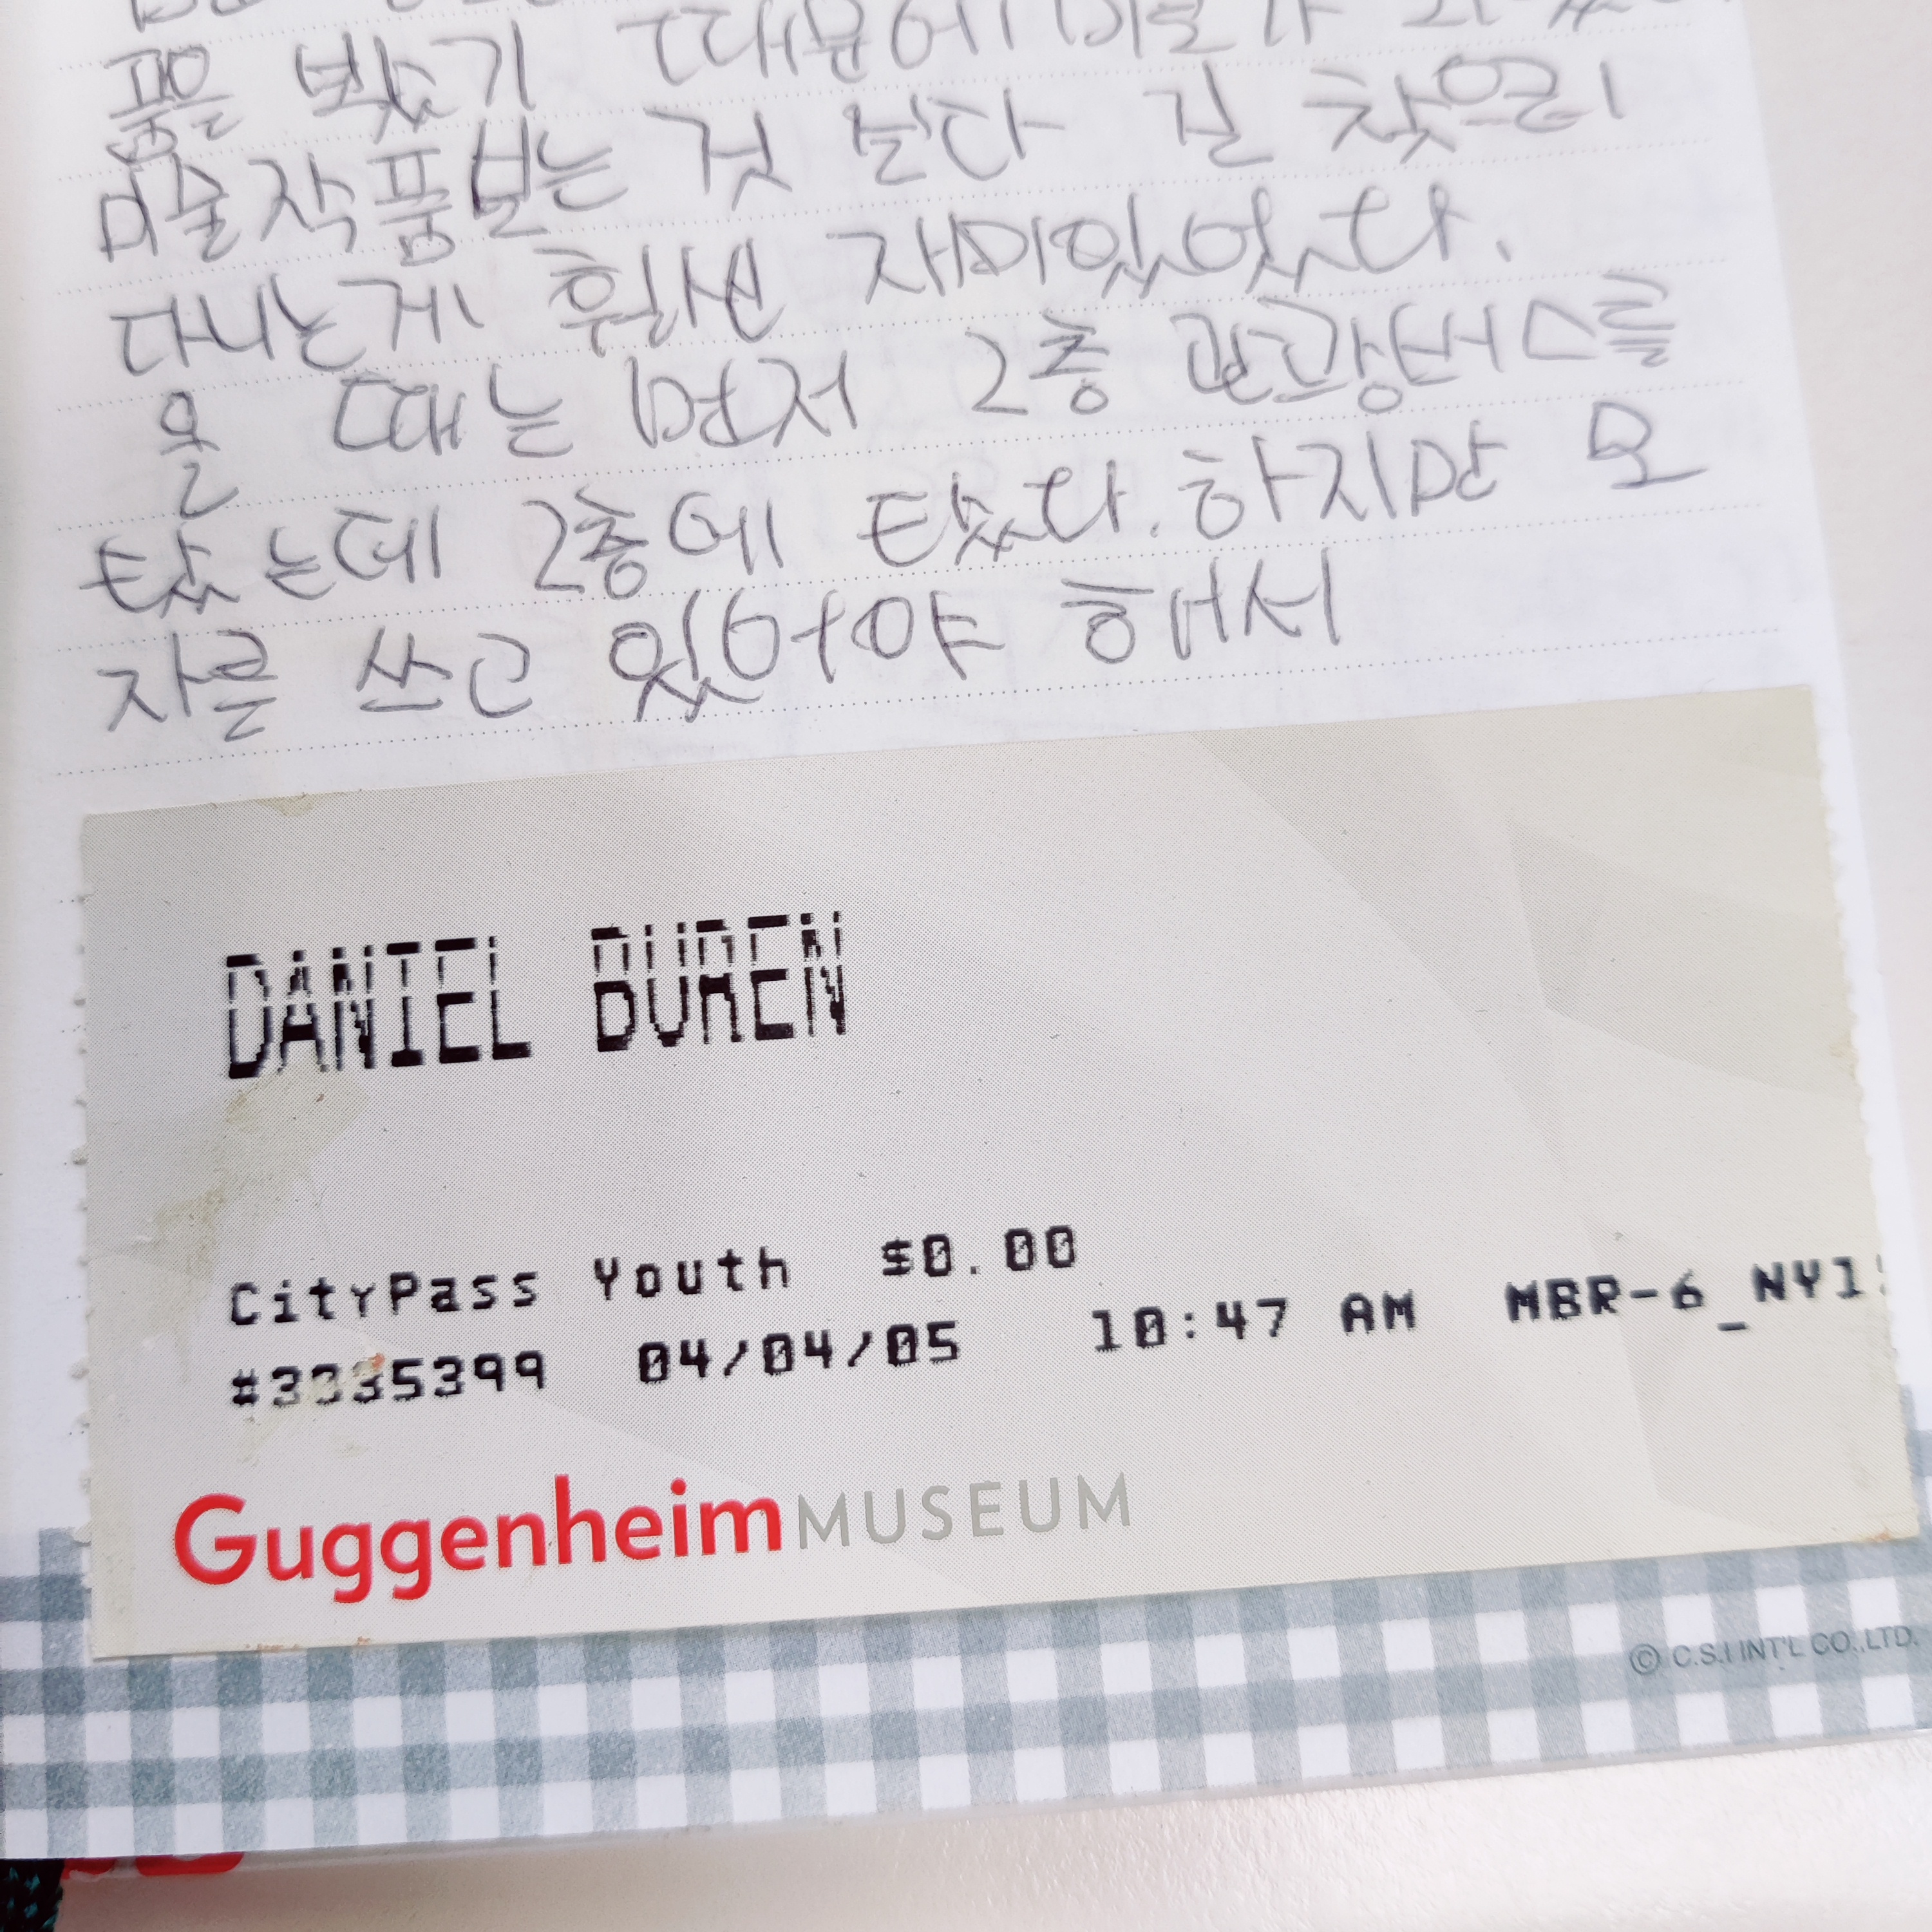 품을 봤기 때문에
미술작품보는 것 보다 길 찾으러
다니는게 훨씬 재미있었다.
올 때는 먼저 2층 관광버스를
탔는데 2층에 탔다. 하지만 모
자를 쓰고 있어야 해서
DANIEL BUREN
CityPass Youth $0.00
#3335399 04/04/05 10:47 AM MBR-6_NY1
Guggenheim MUSEUM
© C.S.I INT'L CO.,LTD.